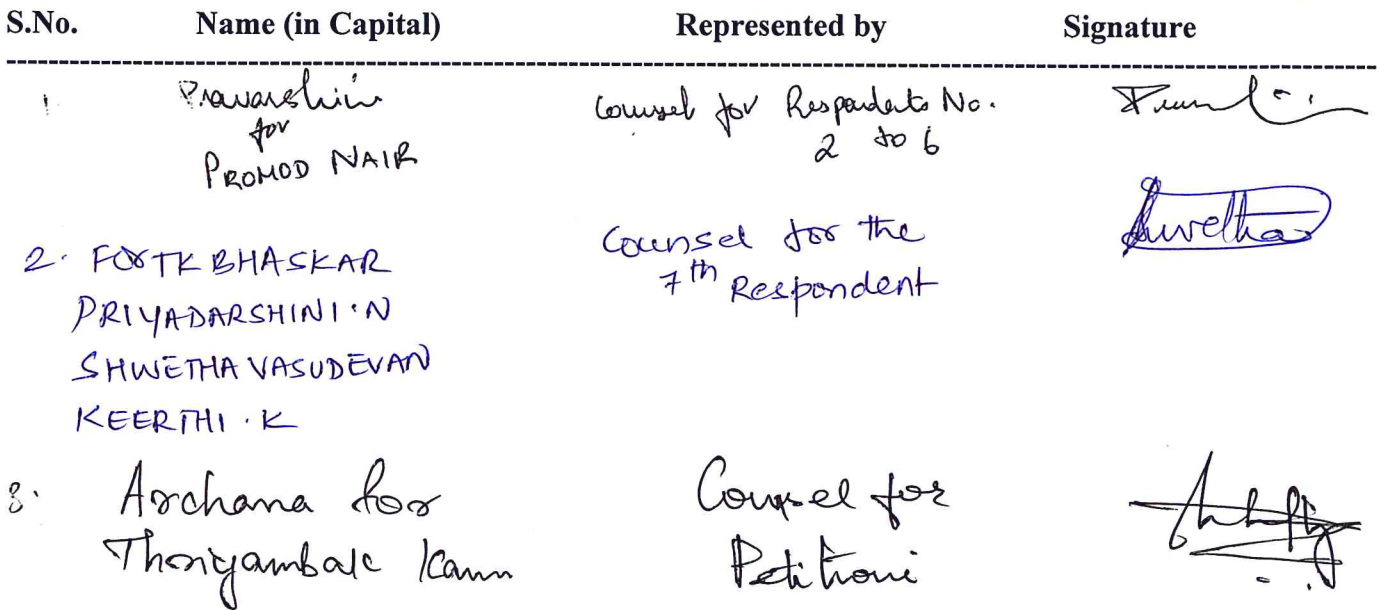 S.No. Name (in Capital) Represented by Signature
1. Pravarshini
for
PROMOD NAIR
Counsel for Respondents No.
2 to 6
2. FOR TK BHASKAR
PRIYADARSHINI.N
SHWETHA VASUDEVAN
KEERTHI.K
Counsel for the
7th Respondent
Shwetha
3. Archana for
Counsel for